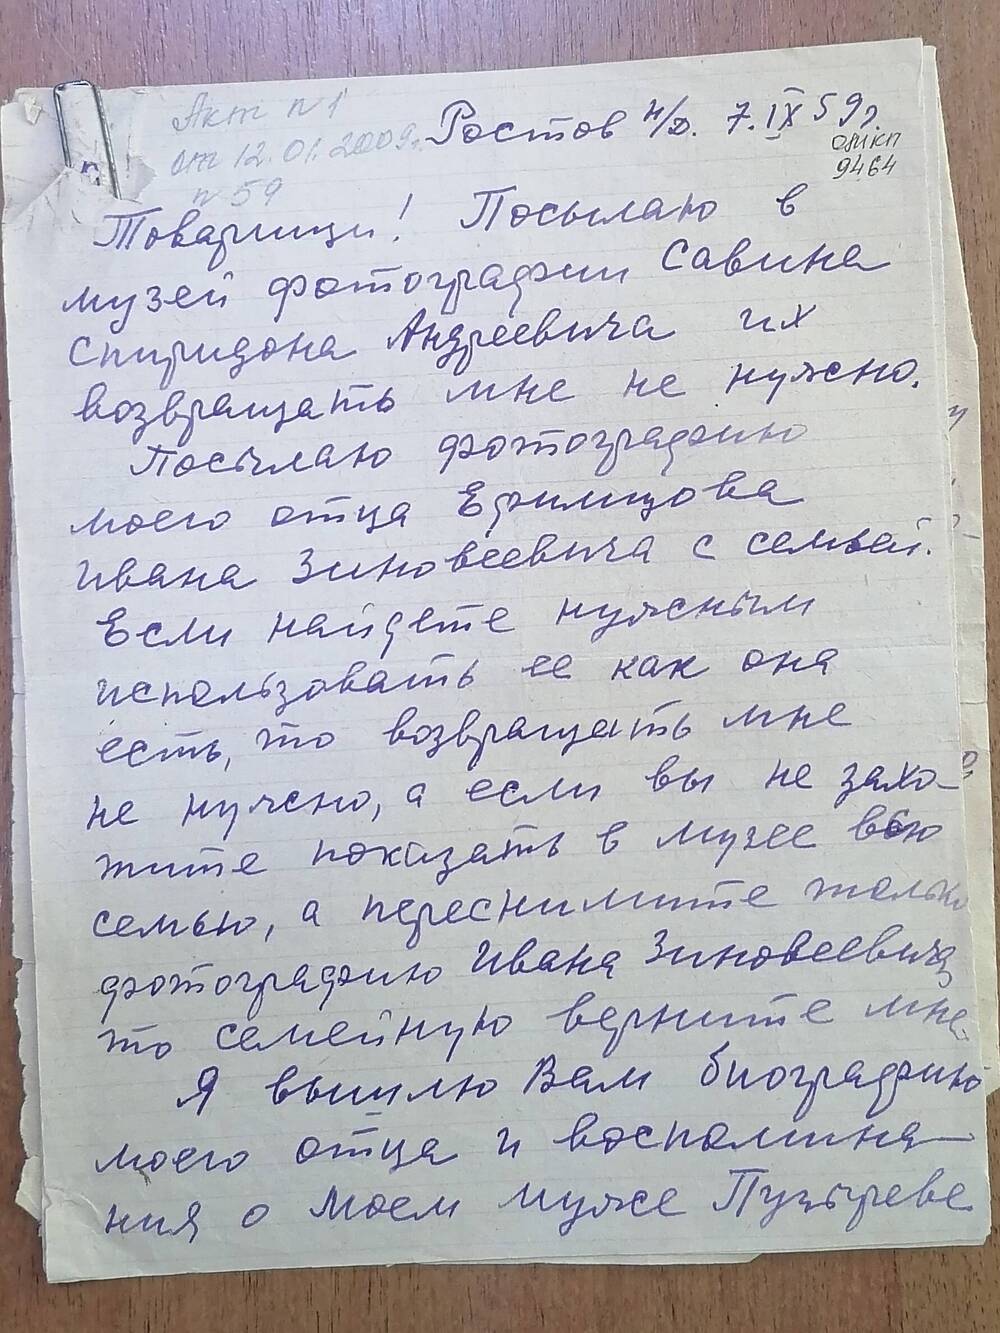 Акт № 1
от 12.01.2009г.
№ 59
Ростов н/Д. 7.IX 59г.
ОМИКП
9464
Товарищи! Посылаю в
музей фотографии Савина
Спиридона Андреевича их
возвращать мне не нужно.
Посылаю фотографию
моего отца Ефимцова
Ивана Зиновеевича с семьей.
Если найдете нужным
использовать ее как она
есть, то возвращать мне
не нужно, а если вы не захо-
тите показать в музее всю
семью, а переснимите только
фотографию Ивана Зиновеевича,
то семейную верните мне.
Я вышлю Вам биографию
моего отца и воспомина-
ния о моем муже Пузыреве